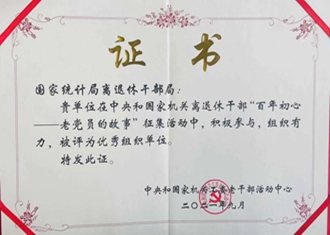 证书
国家统计局离退休干部局：
贵单位在中央和国家机关离退休干部“百年初心
——老党员的故事”征集活动中，积极参与，组织有
力，被评为优秀组织单位。
特发此证。
中央和国家机关工委老干部活动中心
二〇二一年九月